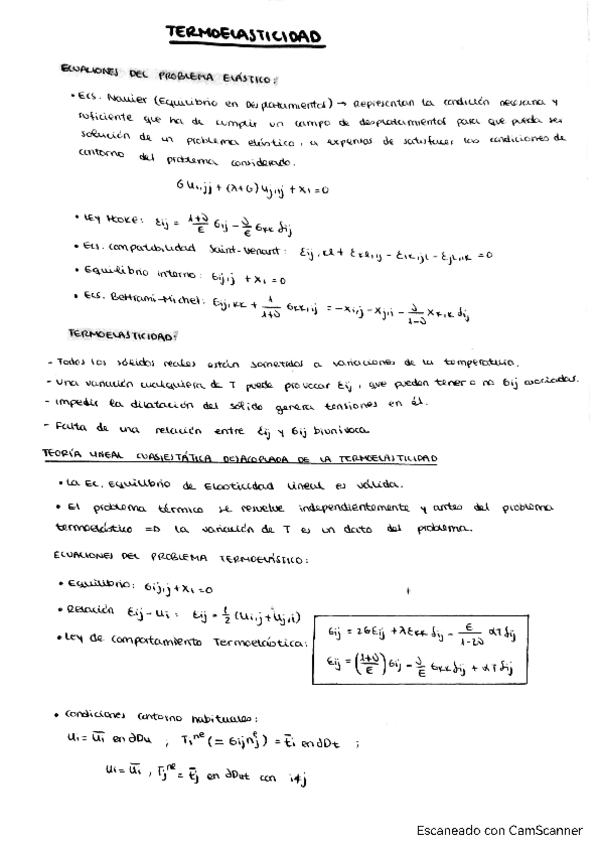 TERMOELASTICIDAD
ECUACIONES DEL PROBLEMA ELÁSTICO:
• Ecs. Navier (Equilibrio en Desplazamientos) → Representan la condición necesaria y
suficiente que ha de cumplir un campo de desplazamientos para que pueda ser
solución de un problema elástico, a expensas de satisfacer las condiciones de
contorno del problema considerado.
G ui,jj + (λ+G) uj,ij + xi = 0
• LEY HOOKE: εij = (1+ν)/E σij - ν/E σkk δij
• Ecs. compatibilidad Saint-Venant: εij,kl + εkl,ij - εik,jl - εjl,ik = 0
• Equilibrio interno: σij,j + xi = 0
• Ecs. Beltrami-Michel: σij,kk + 1/(1+ν) σkk,ij = -xi,j - xj,i - ν/(1-ν) xk,k δij
TERMOELASTICIDAD:
- Todos los sólidos reales están sometidos a variaciones de la temperatura.
- Una variación cualquiera de T puede provocar εij, que pueden tener o no σij asociadas.
- Impedir la dilatación del sólido genera tensiones en él.
- Falta de una relación entre εij y σij biunívoca
TEORÍA LINEAL CUASIESTÁTICA DESACOPLADA DE LA TERMOELASTICIDAD
• La Ec. equilibrio de Elasticidad lineal es válida.
• El problema térmico se resuelve independientemente y antes del problema
termoelástico => la variación de T es un dato del problema.
ECUACIONES DEL PROBLEMA TERMOELÁSTICO:
• Equilibrio: σij,j + xi = 0
• Relación εij - ui: εij = 1/2 (ui,j + uj,i)
• Ley de comportamiento Termoelástica:
σij = 2Gεij + λεkk δij - E/(1-2ν) αT δij
εij = ((1+ν)/E) σij - ν/E σkk δij + αT δij
• Condiciones contorno habituales:
ui = ūi en ∂Du ; Ti^ne (= σij nj^e) = t̄i en ∂Dt ;
ui = ūi , Tj^ne = t̄j en ∂Dut con i≠j
Escaneado con CamScanner